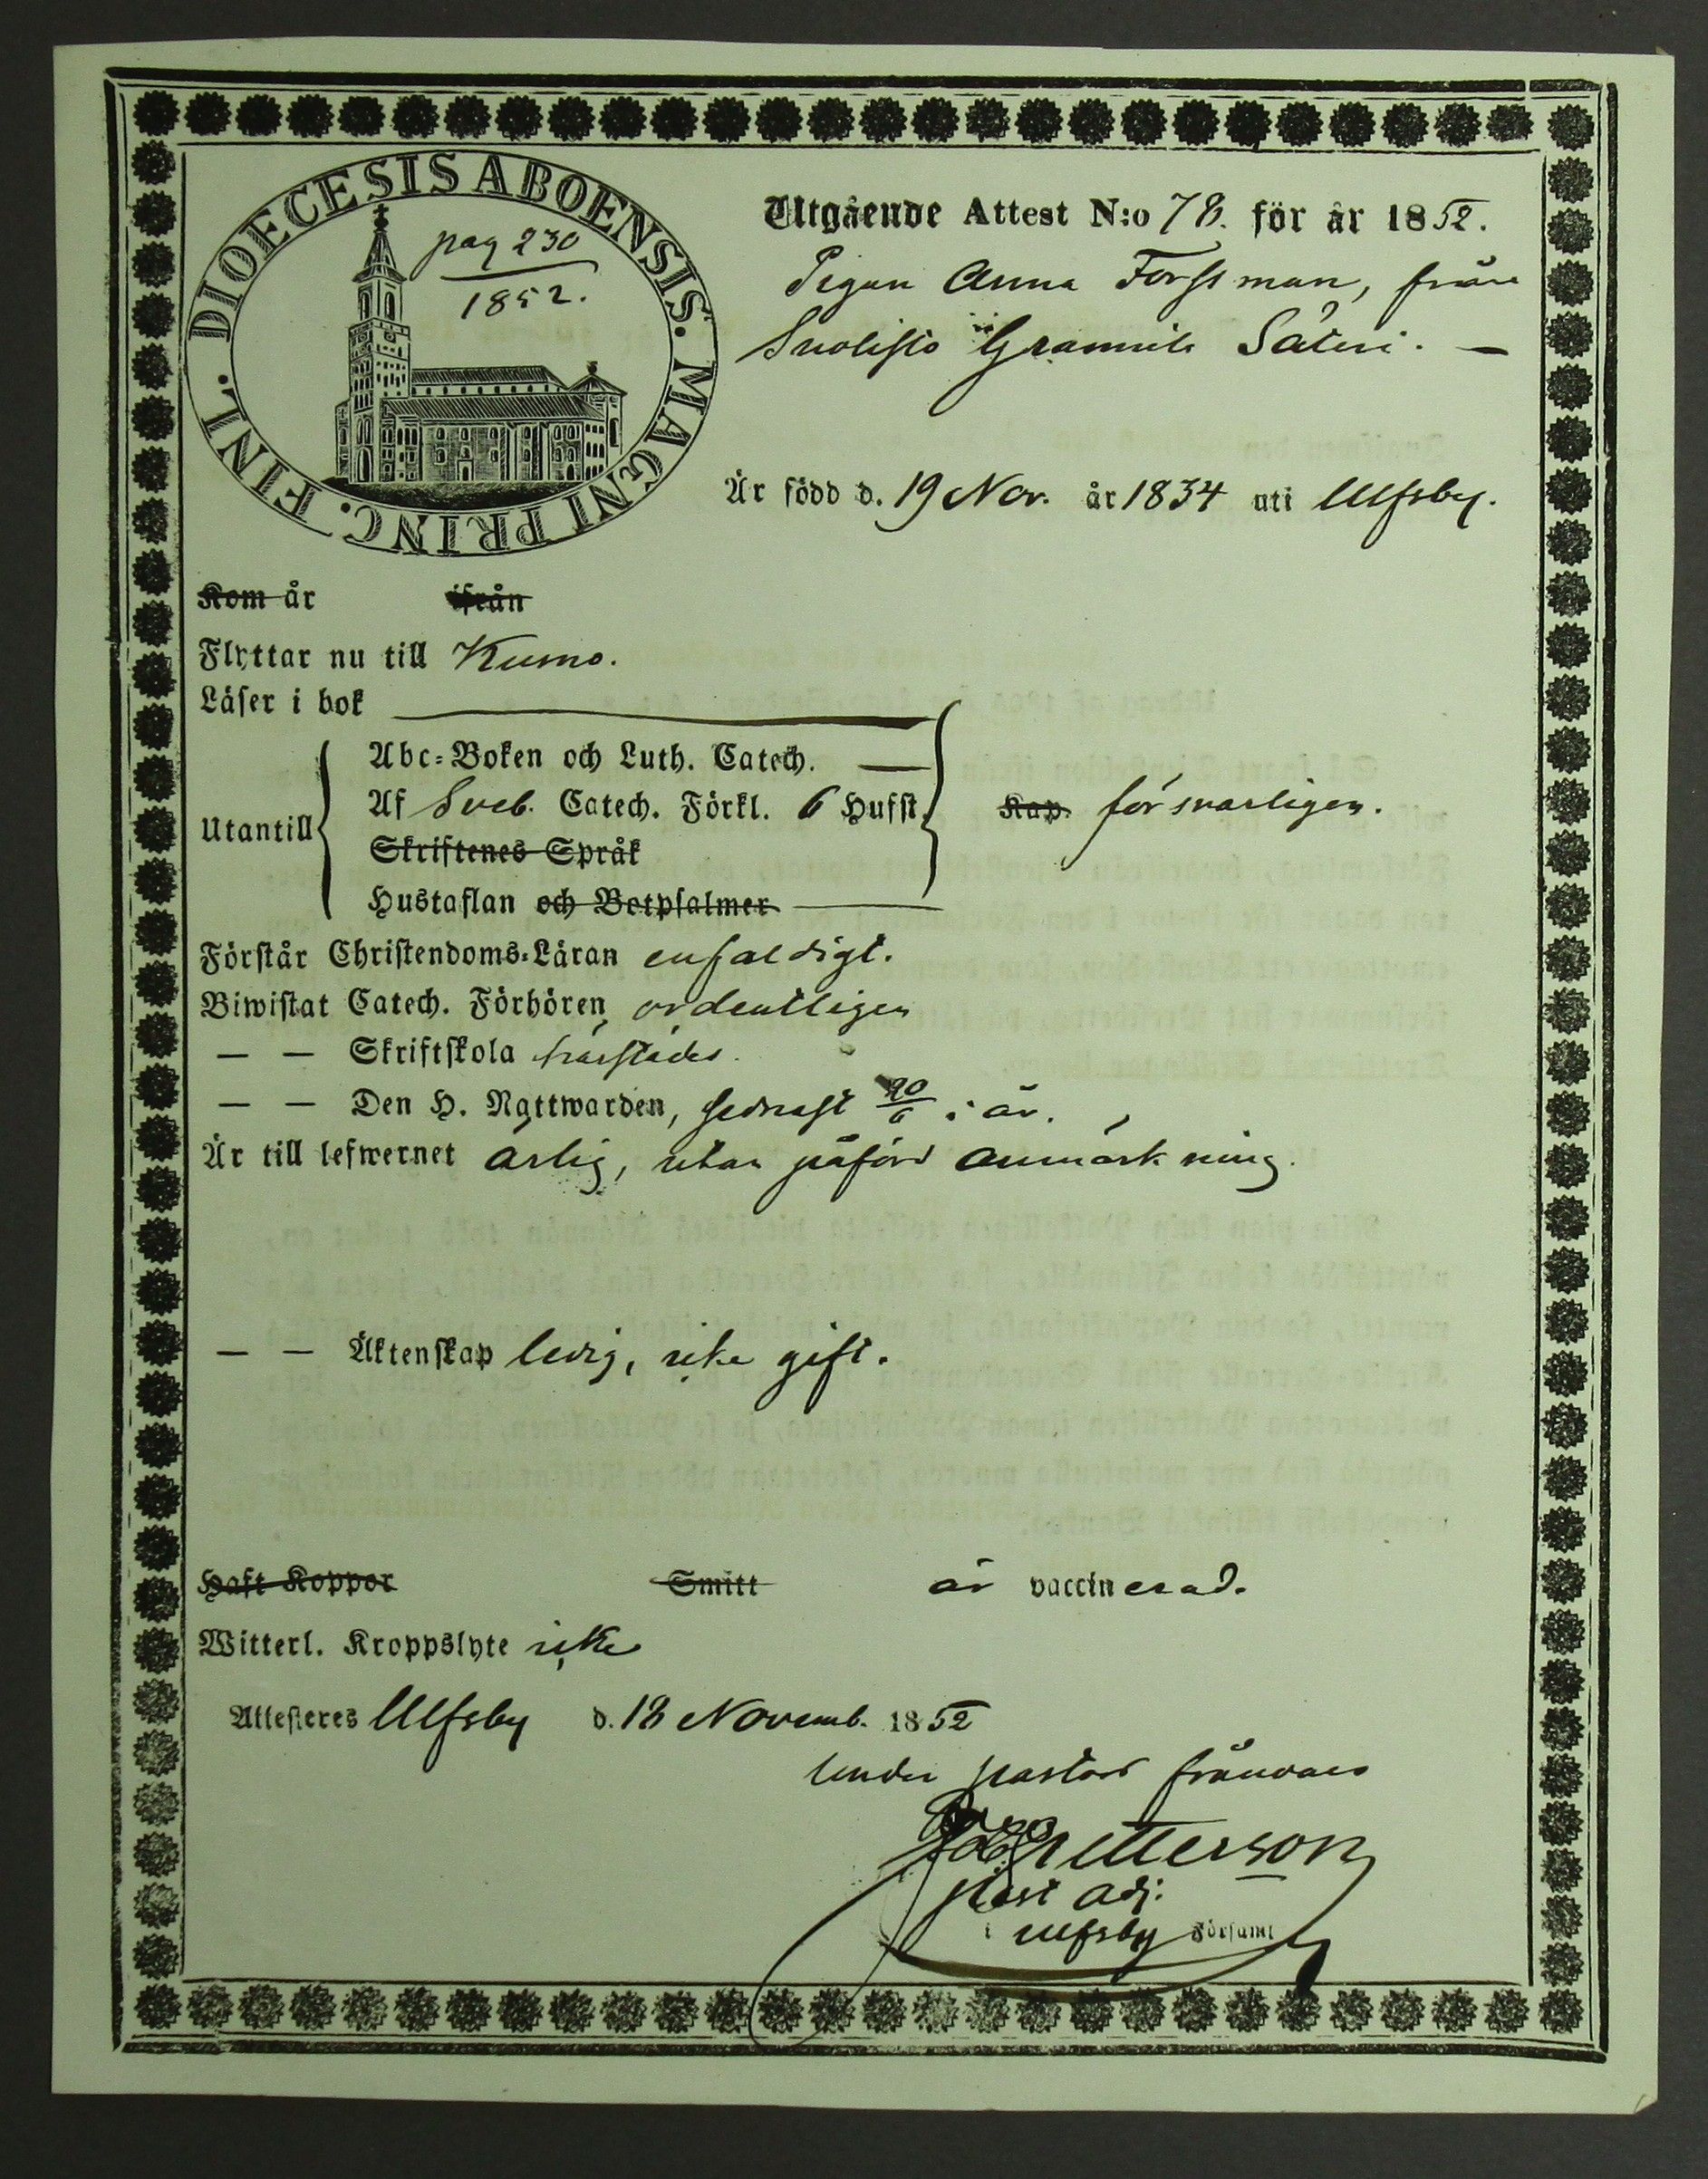 DIOECESIS ABOENSIS. MAGNI PRINC. FINL.
pag 230
1852.
Utgående Attest N:o 78. för år 1852.
Pigan Anna Forssman, från
Suolisto Gammil Säteri. —
Är född d. 19 Nov. år 1834 uti Ulfsby.
Kom år ifrån
Flyttar nu till Kumo.
Läser i bok
Abc-Boken och Luth. Catech. —
Af Sveb. Catech. Förkl. 6 Hufst.
Utantill
Kap. försvarligen.
Skriftenes Språk
Hustaflan och Botpsalmer
Förstår Christendoms-Läran enfaldigt.
Biwistat Catech. Förhören ordentligen
— — Skriftskola härstädes.
— — Den H. Nattwarden, sednast 20/6 i år.
Är till lefwernet ärlig, utan påförd anmärkning.
— — Äktenskap ledig, icke gift.
Haft Koppor Smitt är vaccinerad.
Witterl. Kroppslyte icke
Attesteres Ulfsby d. 18 Novemb. 1852
under pastors frånvaro
Petterson
Past adj.
i Ulfsby Församl